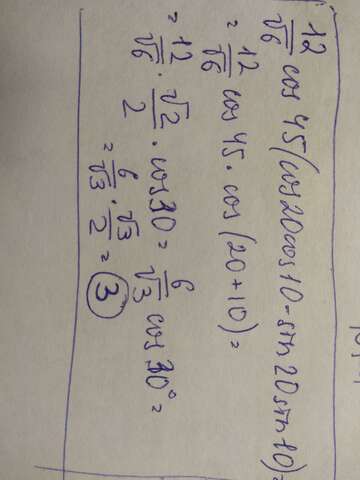 12/√6 cos 45(cos20cos10-sin20sin10)=
= 12/√6 cos 45 · cos (20+10)=
= 12/√6 · √2/2 · cos30= 6/√3 cos30°=
= 6/√3 · √3/2 = 3